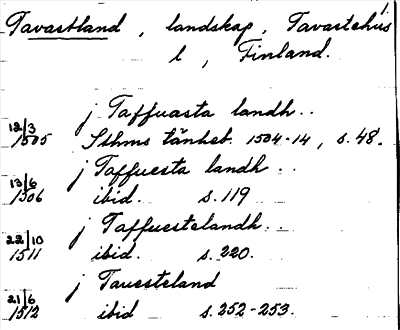 Tavastland, landskap, Tavastehus
l, Finland.
j Taffuasta landh..
12/3 1505 Sthms tänkeb. 1504-14, s. 48.
j Taffuesta landh..
13/6 1506 ibid. s. 119
j Taffuestelandh..
22/10 1511 ibid. s. 220.
j Tauesteland
21/6 1512 ibid s. 252-253.